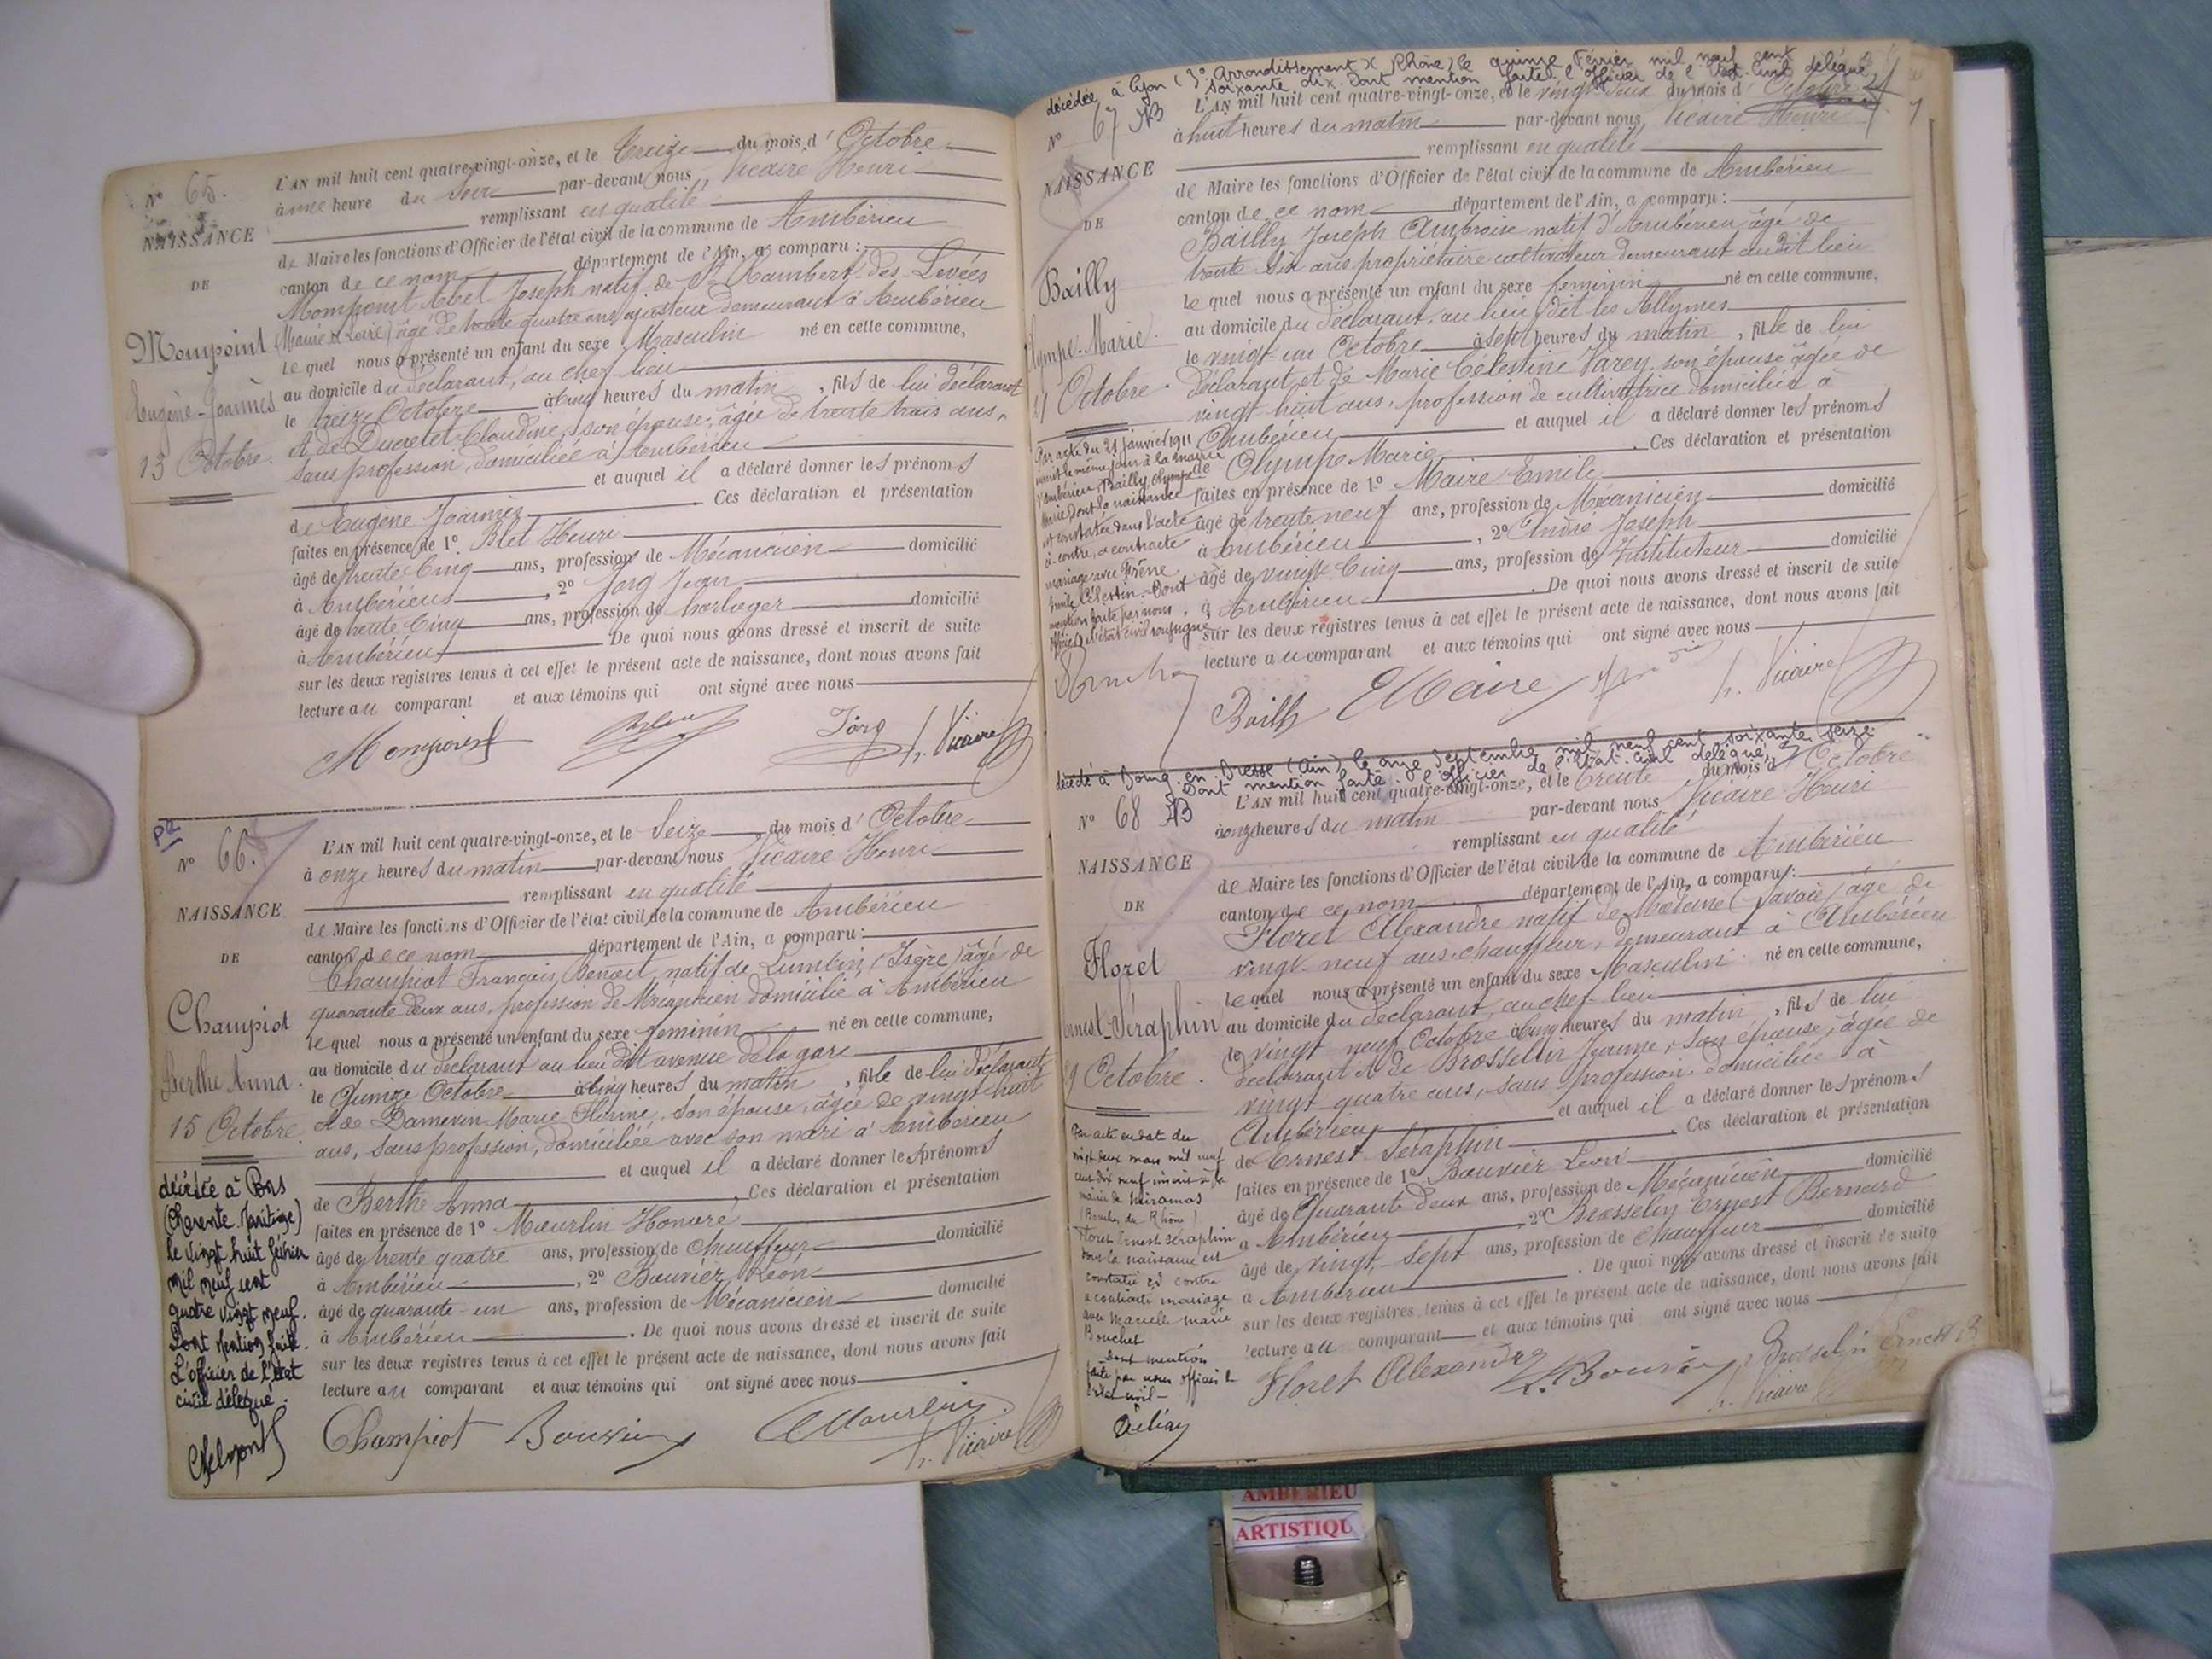 N° 65.
NAISSANCE
DE
Mompoint
Eugène-Joannès
13 Octobre.
L'AN mil huit cent quatre-vingt-onze, et le Treize du mois d'Octobre
à une heure du soir par-devant nous, Vicaire Henri
remplissant en qualité
de Maire les fonctions d'Officier de l'état civil de la commune de Ambérieu
canton de ce nom département de l'Ain, a comparu :
Mompoint Abel Joseph natif de St Rambert-des-Levées
(Maine et Loire) âgé de trente quatre ans ajusteur demeurant à Ambérieu
le quel nous a présenté un enfant du sexe Masculin né en cette commune,
au domicile du déclarant, au chef-lieu
le treize Octobre à cinq heures du matin, fils de lui déclarant
et de Ducretet Claudine, son épouse, âgée de trente trois ans,
sans profession, domiciliée à Ambérieu
et auquel il a déclaré donner les prénoms
de Eugène Joannès Ces déclaration et présentation
faites en présence de 1° Blet Henri
âgé de trente cinq ans, profession de Mécanicien domicilié
à Ambérieu, 2° Jorg Jean
âgé de trente cinq ans, profession de horloger domicilié
à Ambérieu De quoi nous avons dressé et inscrit de suite
sur les deux registres tenus à cet effet le présent acte de naissance, dont nous avons fait
lecture au comparant et aux témoins qui ont signé avec nous
Mompoint Jorg h. Vicaire
N° 66.
NAISSANCE
DE
Champiot
Berthe Anna.
15 Octobre.
décédée à Pons
(Charente Maritime)
le vingt huit février
mil neuf cent
quatre vingt neuf.
Dont mention faite.
L'officier de l'état
civil délégué.
L'AN mil huit cent quatre-vingt-onze, et le Seize du mois d'Octobre
à onze heures du matin par-devant nous Vicaire Henri
remplissant en qualité
de Maire les fonctions d'Officier de l'état civil de la commune de Ambérieu
canton de ce nom département de l'Ain, a comparu :
Champiot François Benoit, natif de Lumbin (Isère) âgé de
quarante deux ans, profession de Mécanicien domicilié à Ambérieu
le quel nous a présenté un enfant du sexe féminin né en cette commune,
au domicile du déclarant au lieu dit avenue de la gare
le Quinze Octobre à cinq heures du matin, fille de lui déclarant
et de Damevin Marie Florine, son épouse, âgée de vingt huit
ans, sans profession, domiciliée avec son mari à Ambérieu
et auquel il a déclaré donner les prénoms
de Berthe Anna Ces déclaration et présentation
faites en présence de 1° Mourlin Honoré
âgé de trente quatre ans, profession de Chauffeur domicilié
à Ambérieu, 2° Bouvier Léon
âgé de quarante-un ans, profession de Mécanicien domicilié
à Ambérieu. De quoi nous avons dressé et inscrit de suite
sur les deux registres tenus à cet effet le présent acte de naissance, dont nous avons fait
lecture au comparant et aux témoins qui ont signé avec nous
Champiot Bouvier Mourlin h. Vicaire
décédée à Lyon (3° Arrondissement) (Rhône) le quinze Février mil neuf cent
soixante dix. Dont mention faite. l'officier de l'Etat-Civil délégué,
N° 67
NAISSANCE
DE
Bailly
Olympe-Marie
21 Octobre.
Par acte du 21 janvier 1911
inscrit le même jour à la mairie
d'Ambérieu, Bailly Olympe
Marie dont la naissance
est constatée dans l'acte
ci-contre, a contracté
mariage avec
Célestin. Dont
mention faite par nous,
officier de l'état civil soussigné
L'AN mil huit cent quatre-vingt-onze, et le vingt deux du mois d'Octobre
à huit heures du matin par-devant nous, Vicaire Henri
remplissant en qualité
de Maire les fonctions d'Officier de l'état civil de la commune de Ambérieu
canton de ce nom département de l'Ain, a comparu :
Bailly Joseph Ambroise natif d'Ambérieu âgé de
trente six ans propriétaire cultivateur demeurant audit lieu
le quel nous a présenté un enfant du sexe féminin né en cette commune,
au domicile du déclarant, au lieu dit les Allymes
le vingt un Octobre à sept heures du matin, fille de lui
déclarant et de Marie Célestine Varey, son épouse âgée de
vingt huit ans, profession de cultivatrice domiciliée à
Ambérieu et auquel il a déclaré donner les prénoms
de Olympe Marie. Ces déclaration et présentation
faites en présence de 1° Maire Emile
âgé de trente neuf ans, profession de Mécanicien domicilié
à Ambérieu, 2° Joseph
âgé de vingt cinq ans, profession de Instituteur domicilié
à Ambérieu. De quoi nous avons dressé et inscrit de suite
sur les deux registres tenus à cet effet le présent acte de naissance, dont nous avons fait
lecture au comparant et aux témoins qui ont signé avec nous
Bailly E Maire h. Vicaire
décédé à Bourg-en-Bresse (Ain) le onze Septembre mil neuf cent soixante seize.
Dont mention faite. l'officier de l'Etat-Civil délégué,
N° 68
NAISSANCE
DE
Floret
Ernest-Séraphin
29 Octobre.
Par acte en date du
vingt deux mars mil neuf
cent dix neuf inscrit à la
mairie de Miramas
(Bouches du Rhône)
Floret Ernest Séraphin
dont la naissance est
constatée ci contre
a contracté mariage
avec Marcelle Marie
Bouchet
Dont mention
faite par nous officier de
l'état civil
L'AN mil huit cent quatre-vingt-onze, et le trente du mois d'Octobre
à onze heures du matin par-devant nous Vicaire Henri
remplissant en qualité
de Maire les fonctions d'Officier de l'état civil de la commune de Ambérieu
canton de ce nom département de l'Ain, a comparu :
Floret Alexandre natif de Modane (Savoie) âgé de
vingt-neuf ans chauffeur, demeurant à Ambérieu
le quel nous a présenté un enfant du sexe Masculin né en cette commune,
au domicile du déclarant, au chef-lieu
le vingt neuf Octobre à cinq heures du matin, fils de lui
déclarant et de Brosselin Jeanne, son épouse, âgée de
vingt-quatre ans, sans profession, domiciliée à
Ambérieu et auquel il a déclaré donner les prénoms
de Ernest Séraphin. Ces déclaration et présentation
faites en présence de 1° Bouvier Léon
âgé de Quarante deux ans, profession de Mécanicien domicilié
à Ambérieu, 2° Brosselin Ernest Bernard
âgé de vingt sept ans, profession de chauffeur domicilié
à Ambérieu. De quoi nous avons dressé et inscrit de suite
sur les deux registres tenus à cet effet le présent acte de naissance, dont nous avons fait
lecture au comparant et aux témoins qui ont signé avec nous
Floret Alexandre L. Bouvier Brosselin Ernest B
h. Vicaire
AMBERIEU
ARTISTIQU